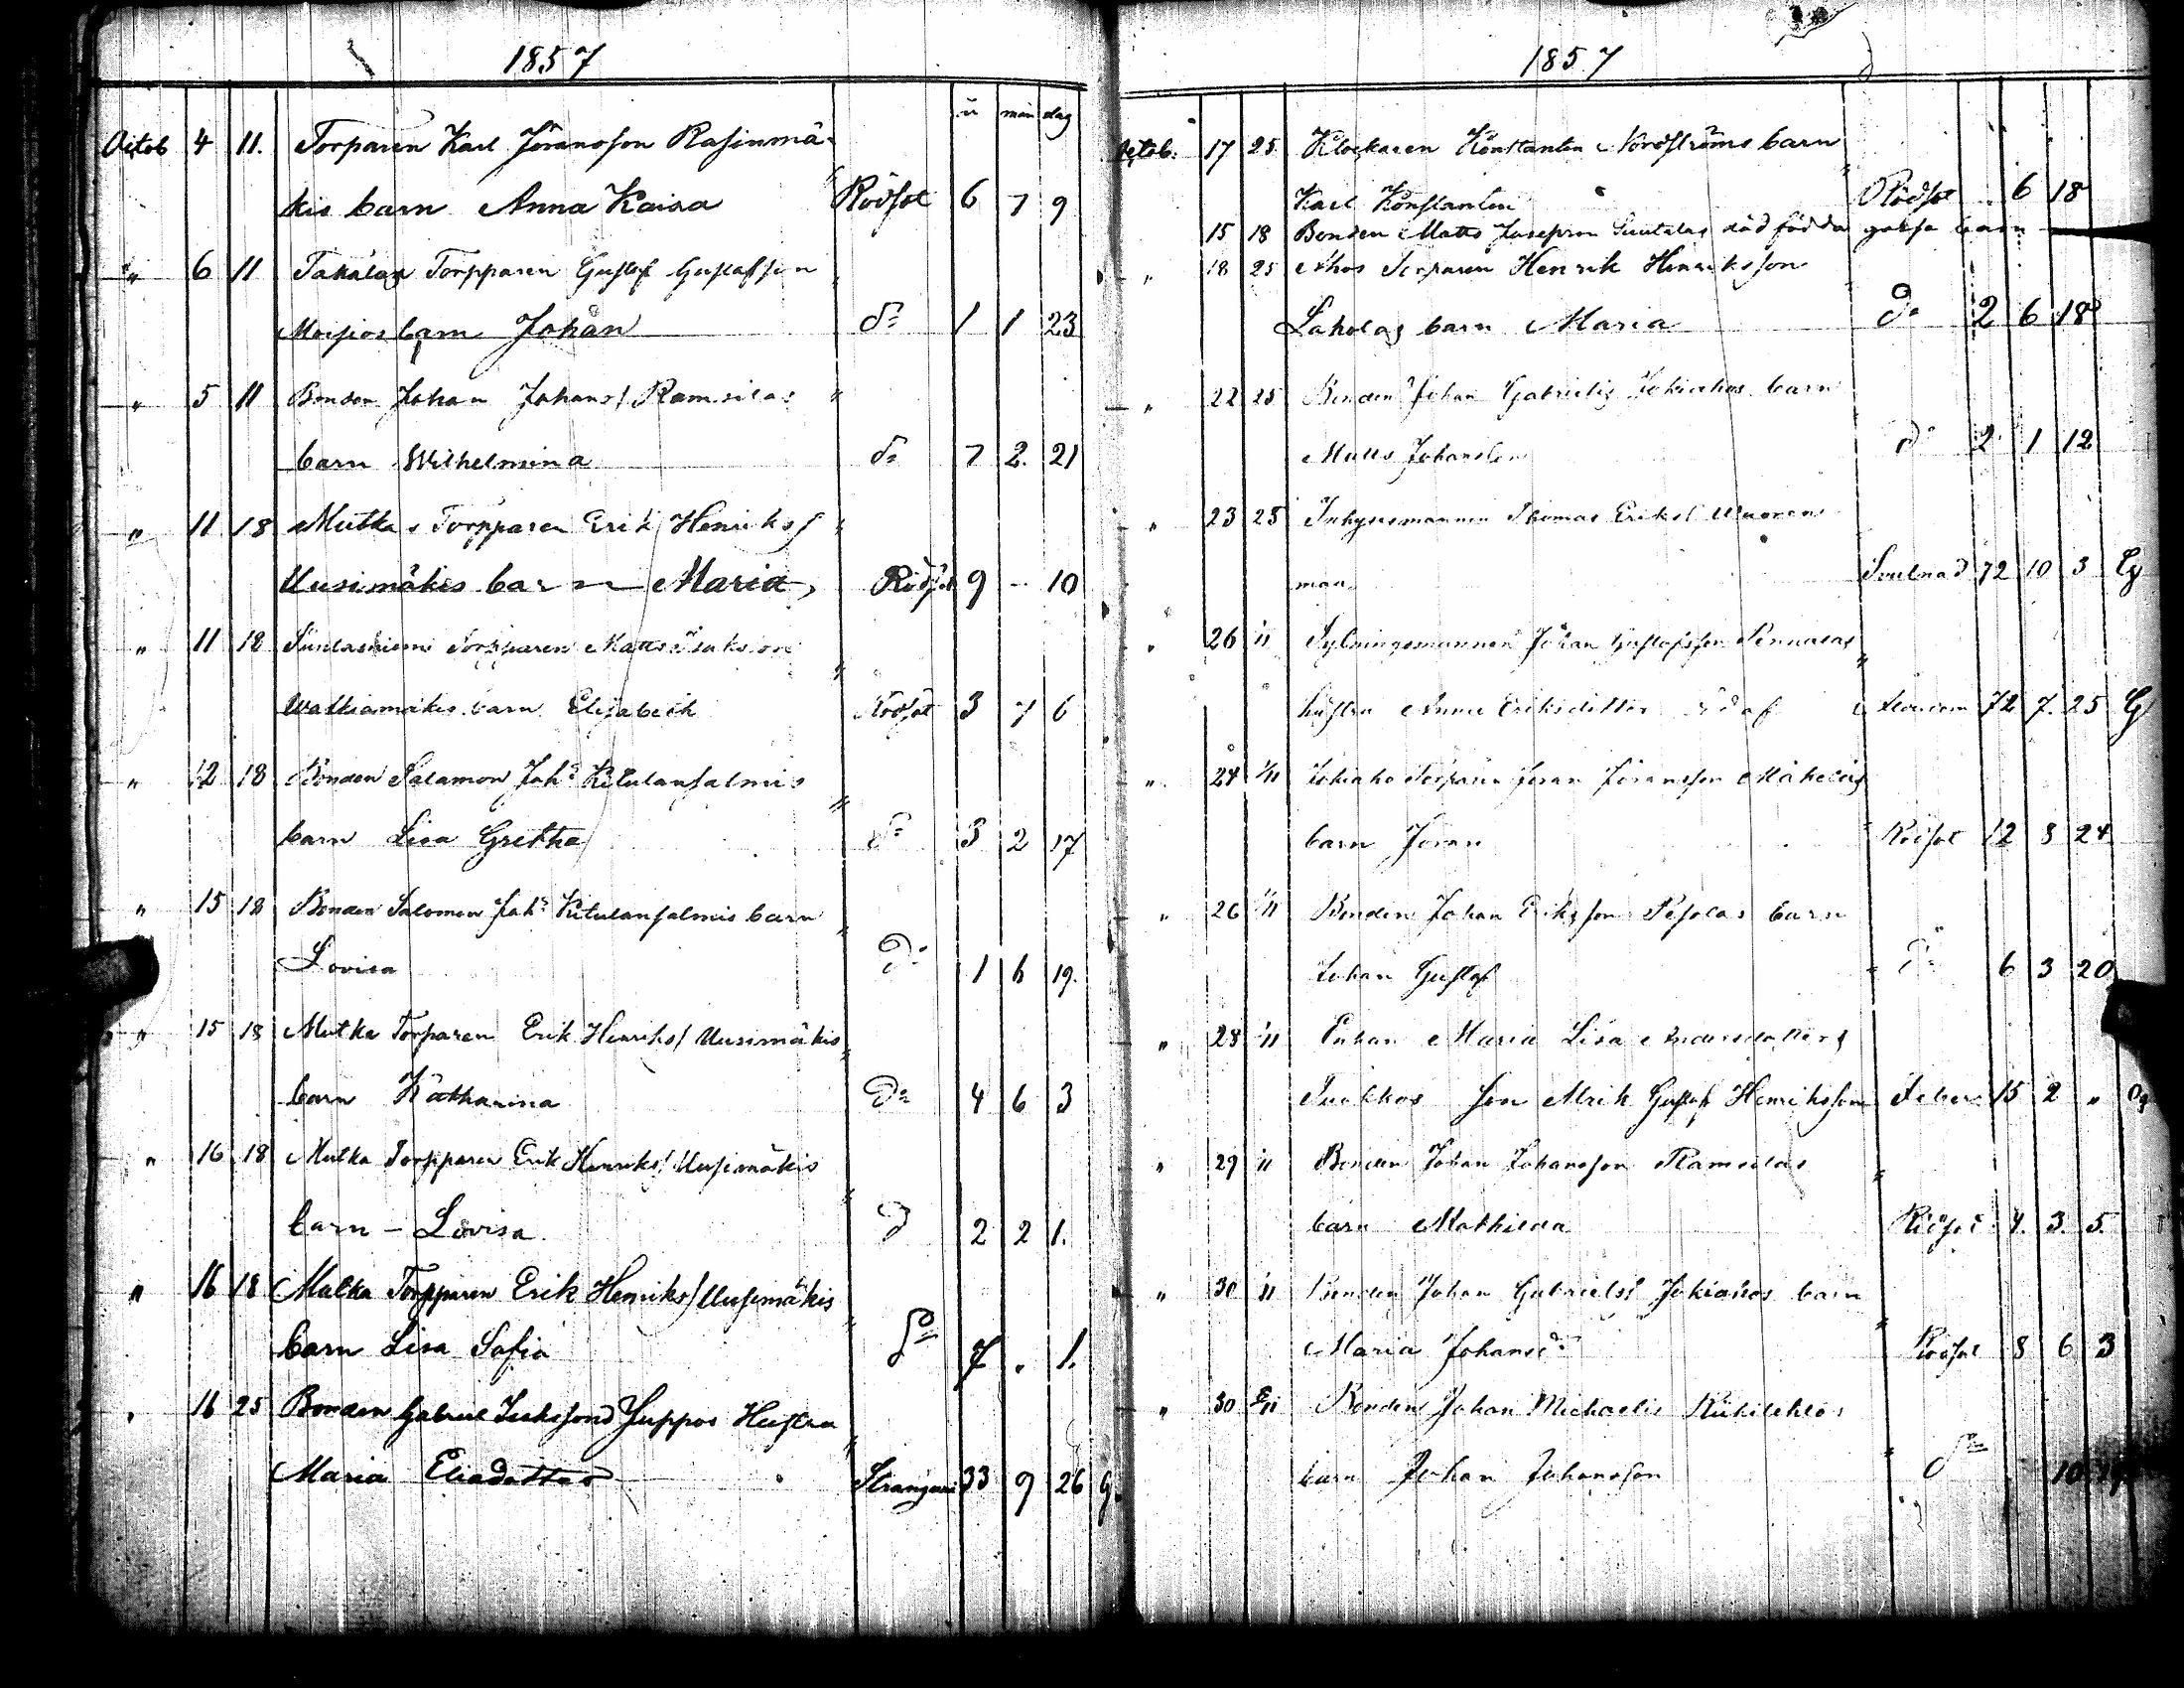 1857
å mån dag
Octob 4 11. Torparen Karl Jöransson Rasinmä-
kis barn Anna Kaisa Rödsot 6 7 9
" 6 11 Takalas Torpparen Gustaf Gustafsson
Moisios barn Johan do 1 1 23
" 5 11 Bonden Johan Johans/ Ramsilas
barn Wilhelmina do 7 2. 21
" 11 18 Mutkas Torpparen Erik Henriks/
Uusimäkis barn Maria Rödsot 9 - 10
" 11 18 Torpparen Matts Isaksson
Walkiamäkis barn Elisabeth Rödsot 3 7 6
" 12 18 Bonden Salamon Johs Kitulansalmis
barn Lisa Gretha do 3 2 17
" 15 18 Bonden Salomon Johs Kitulansalmis barn
Lovisa Do 1 6 19.
" 15 18 Mutka Torparen Erik Henriks/ Uusimäkis
barn Katharina Do 4 6 3
" 16 18 Mutka Torpparen Erik Henriks/ Uusimäkis
barn - Lovisa D 2 2 1.
" 16 18 Mutka Torpparen Erik Henriks/ Uusimäkis
barn Lisa Sofia Do 7 . 1.
" 16 25 Bonden Gabriel Juppos Hustru
Maria Eliadotter 33 9 26 G.
1857
Octob. 17 25 Klockaren Konstantin Nordströms barn
Karl Konstantin Rödsot 6 18
15 18 Bonden Matts Josepsson död födda barn
" 18 25 Ahos Torparen Henrik Henriksson
Laholas barn Maria Do 2 6 18
" 22 25 Bonden Johan Gabriels Jokiahos barn
Matts Johansson Do 2 1 12
" 23 25 Inhysesmannen Thomas Eriks/ Wuoren
maa 72 10 3 G
" 26 1/11 Sytningsmannen Johan Gustafsson Pennalas
hustru Anna Eriksdotter 72 7. 25 G
" 24 1/11 Jokiaho Torparen Jöran Jöransson Mäkeläs
barn Jöran Rödsot 12 8 24
" 26 1/11 Bonden Johan Eriksson barn
Johan Gustaf Do 6 3 20
" 28 1/11 Enkan Maria Lisa Andersdotters
son Gustaf Henriksson Feber 15 2 "
" 29 1/11 Bonden Johan Johansson Ramsilas
barn Mathilda Rödsot 4. 3. 5.
" 30 1/11 Bonden Johan Gabriels/ Jokiahos barn
Maria Johansd Rödsot 8 6 3
" 30 8/11 Bonden Johan Michaelis
barn Johan Johansson Do 10